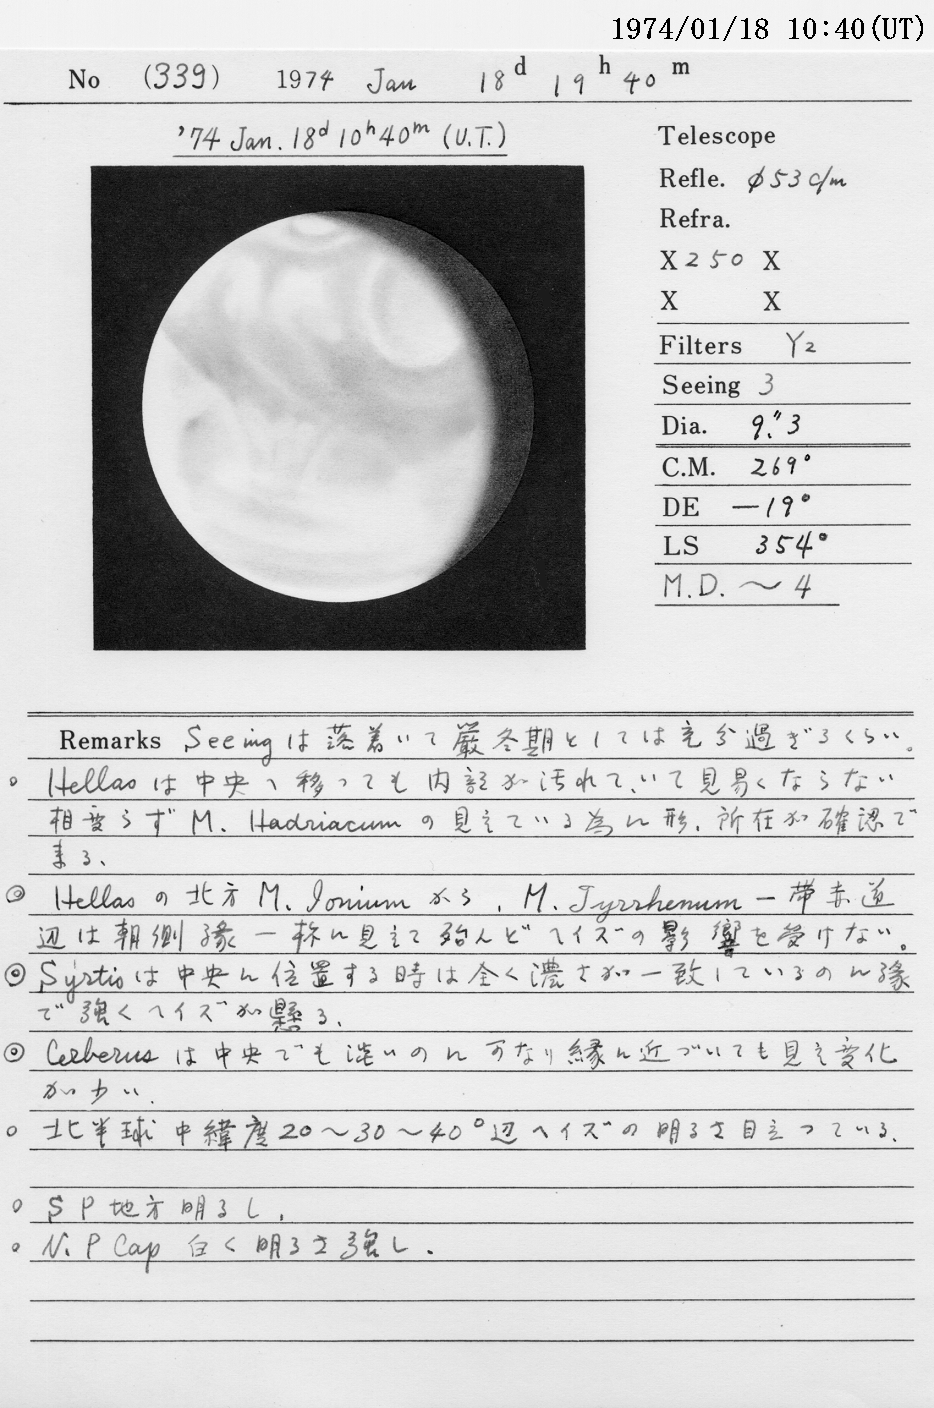 1974/01/18 10:40(UT)
No (339) 1974 Jan 18d 19h 40m
'74 Jan. 18d 10h 40m (U.T.)
Telescope
Refle. φ53c/m
Refra.
X250 X
X X
Filters Y2
Seeing 3
Dia. 9."3
C.M. 269°
DE —19°
LS 354°
M.D. ～4
Remarks Seeingは落着いて厳冬期としては充分過ぎるくらい。
○ Hellasは中央へ移っても内部が汚れていて見易くならない
相変らずM. Hadriacumの見えている為に形、所在が確認で
まる、
◎ Hellasの北方M. Ioniumから、M. Tyrrhenum一帯赤道
辺は朝側縁一杯に見えて殆んどヘイズの影響を受けない。
◎ Syrtisは中央に位置する時は全く濃さが一致しているのに縁
で強くヘイズが懸る、
◎ Cerberusは中央でも淡いのに可なり縁に近づいても見え変化
が少い、
○ 北半球中緯度20～30～40°辺ヘイズの明るさ目立っている、
○ SP地方明るし、
○ N.P Cap 白く明るさ強し.